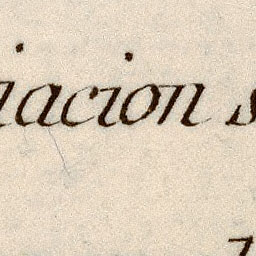 iacion s